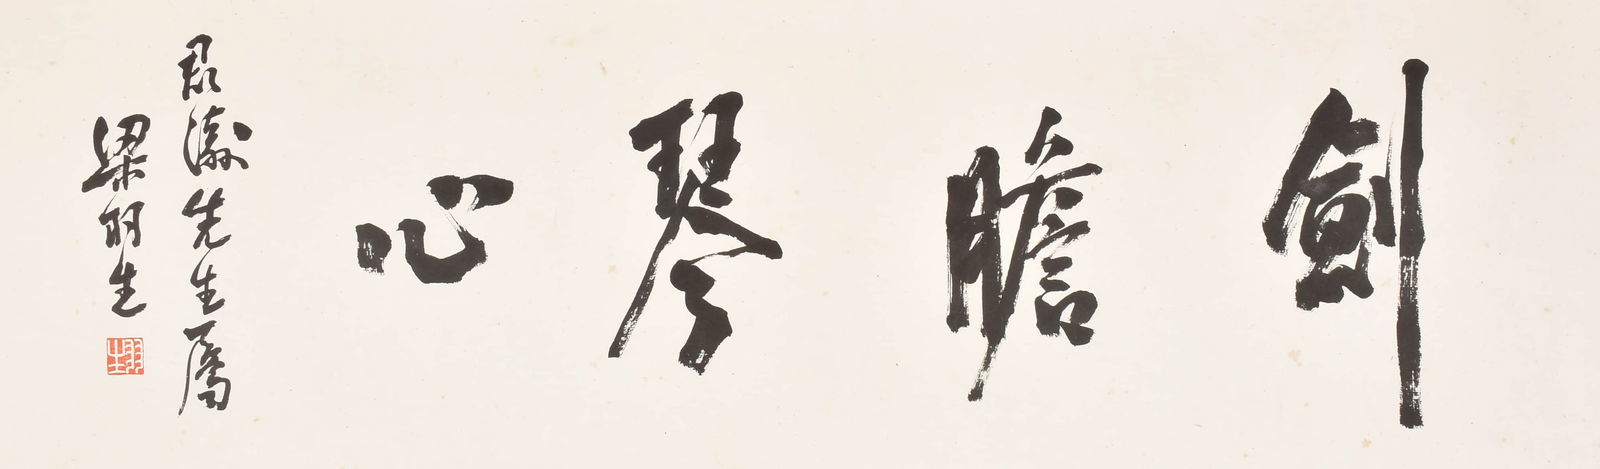 劍膽琴心
先生屬
梁羽生
羽生